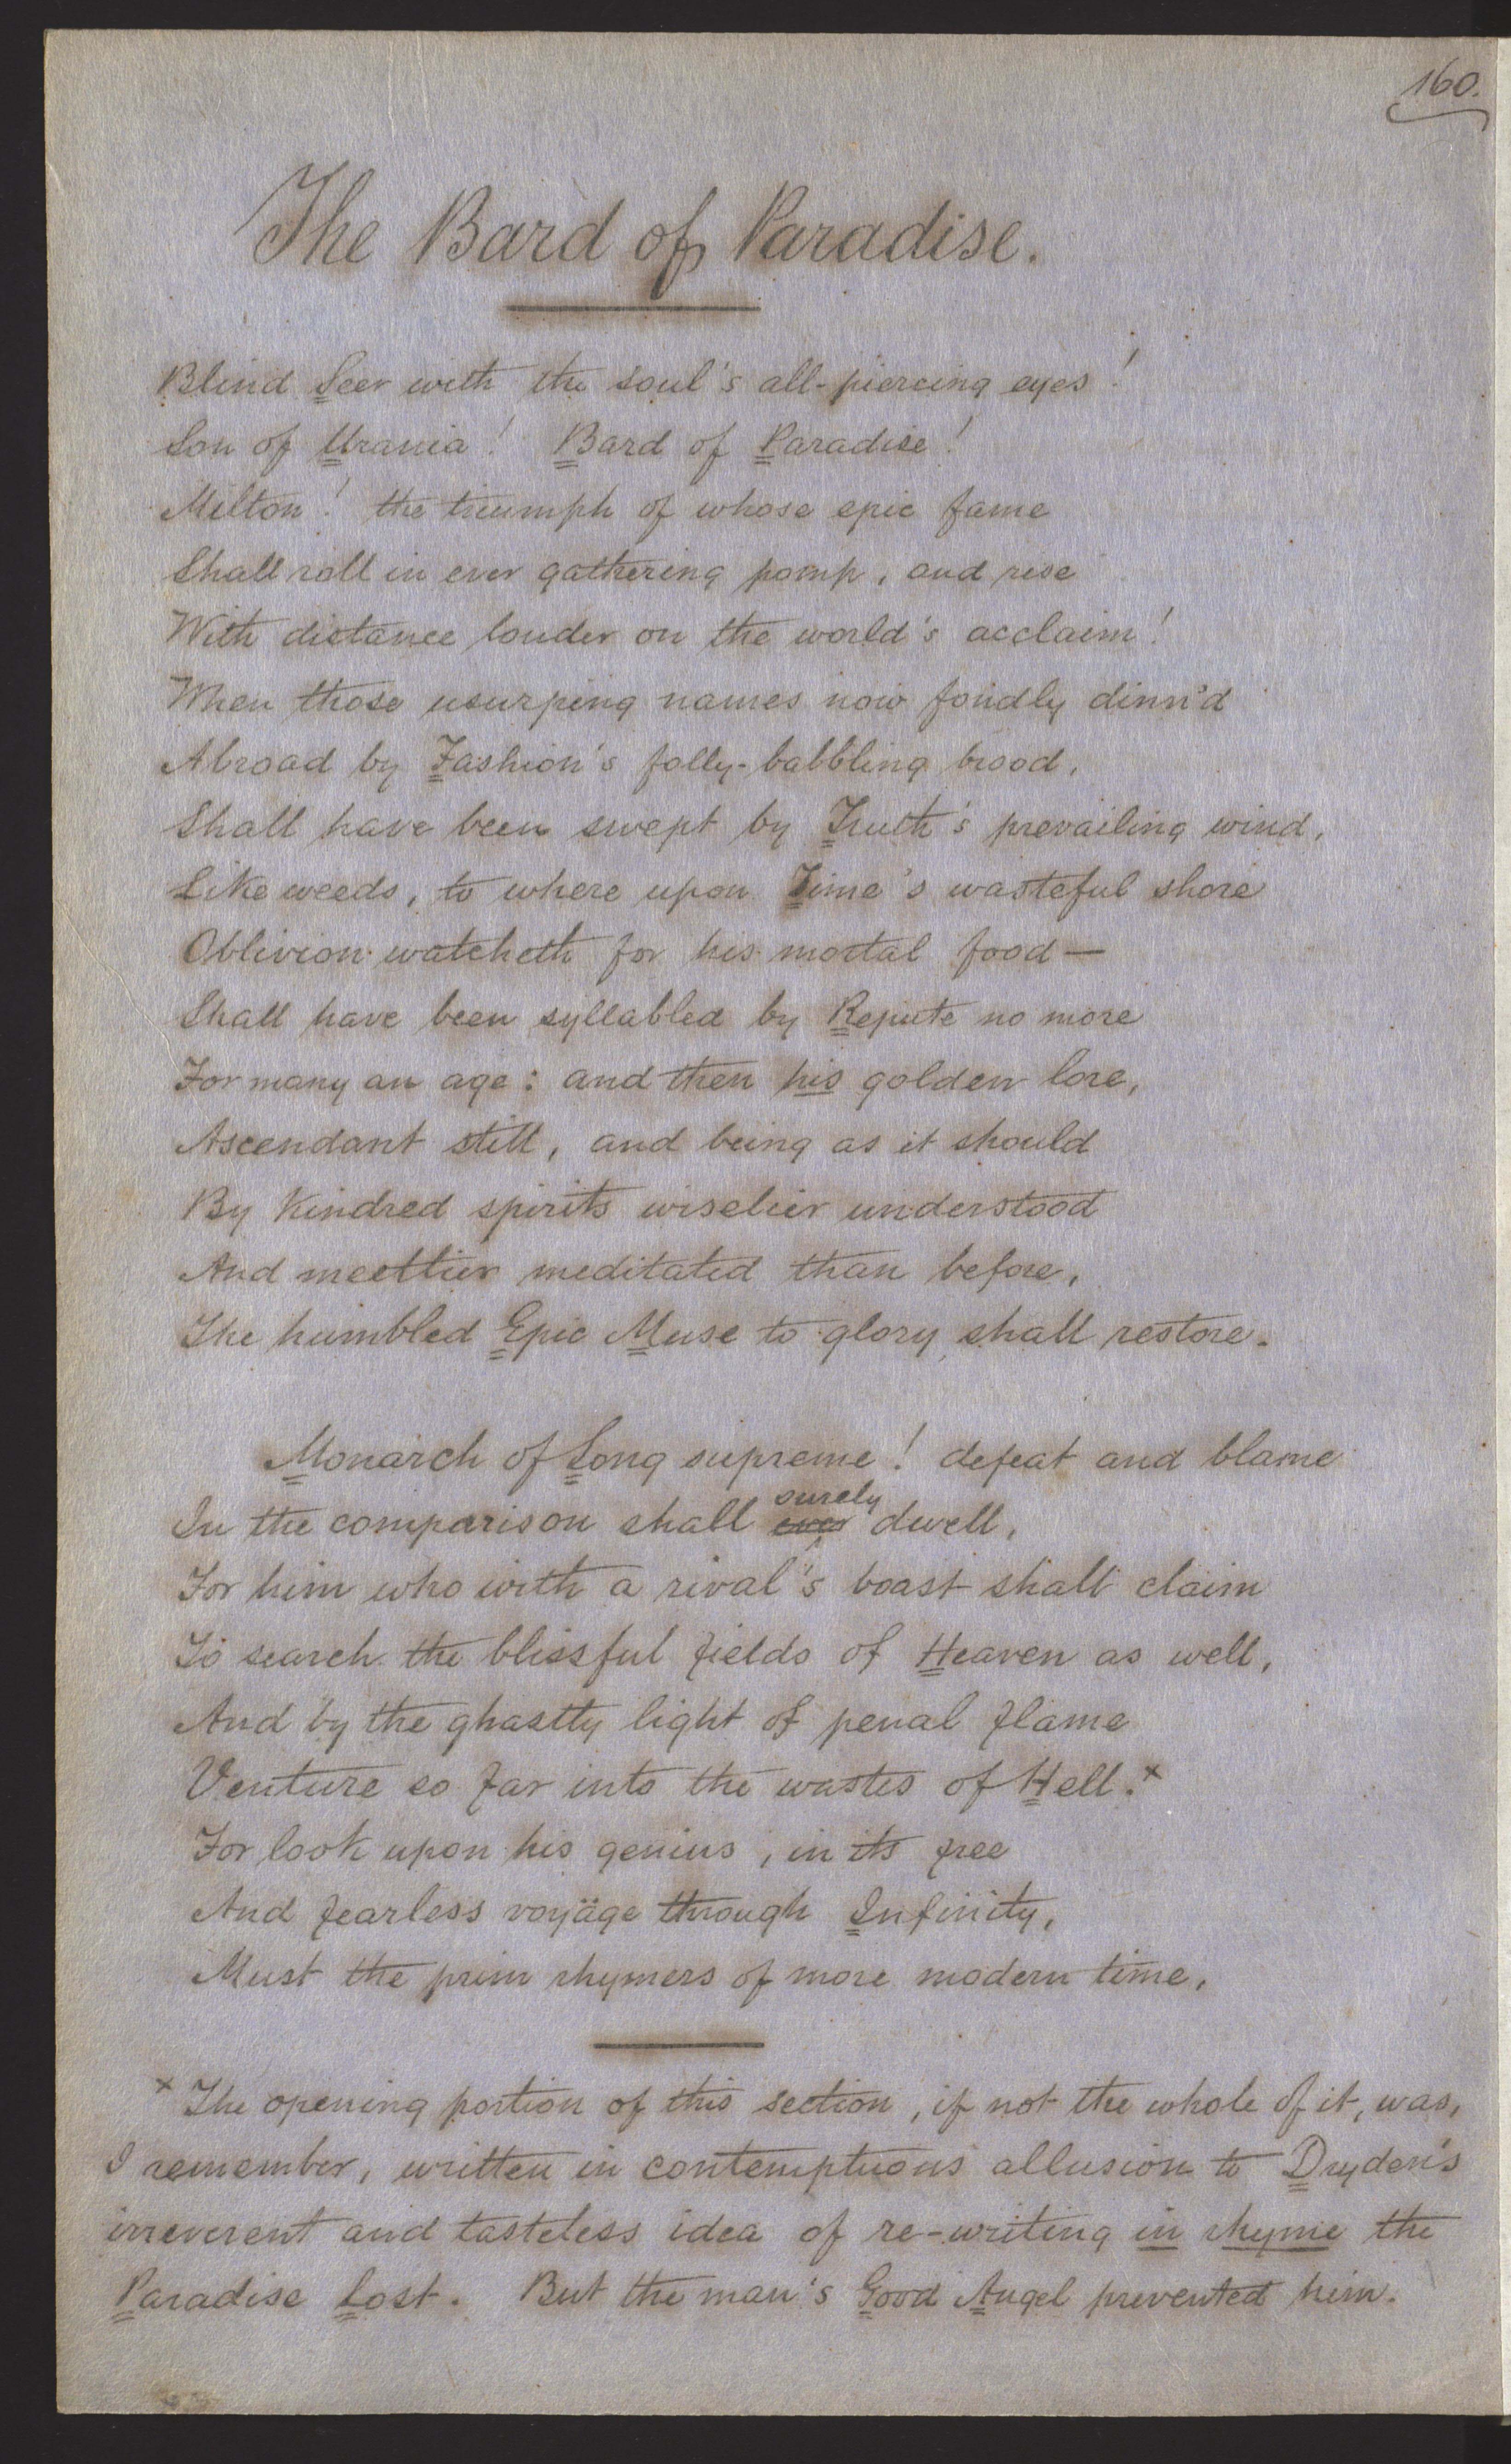 160.
The Bard of Paradise.
Blind Seer with the soul's all-piercing eyes!
Son of Urania! Bard of Paradise!
Milton! the triumph of whose epic fame
Shall roll in ever gathering pomp, and rise
With distance louder on the world's acclaim!
When those usurping names now fondly dinn'd
Abroad by Fashion's folly-babbling brood,
Shall have been swept by Truth's prevailing wind,
Like weeds, to where upon Time's wasteful shore
Oblivion watcheth for his mortal food—
Shall have been syllabled by Repute no more
For many an age: and then his golden lore,
Ascendant still, and being as it should
By kindred spirits wiselier understood
And meetlier meditated than before,
The humbled Epic Muse to glory shall restore.
Monarch of Song supreme! defeat and blame
surely
In the comparison shall ever dwell,
For him who with a rival's boast shall claim
To search the blissful fields of Heaven as well,
And by the ghastly light of penal flame
Venture so far into the wastes of Hell.×
For look upon his genius, in its free
And fearless voyäge through Infinity,
Must the prim rhymers of more modern time,
× The opening portion of this section, if not the whole of it, was,
I remember, written in contemptuous allusion to Dryden's
irreverent and tasteless idea of re-writing in rhyme the
Paradise Lost. But the man's Good Angel prevented him.